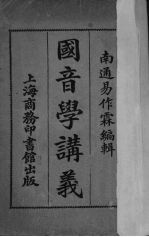 南通易作霖編輯
國音學講義
上海商務印書館出版